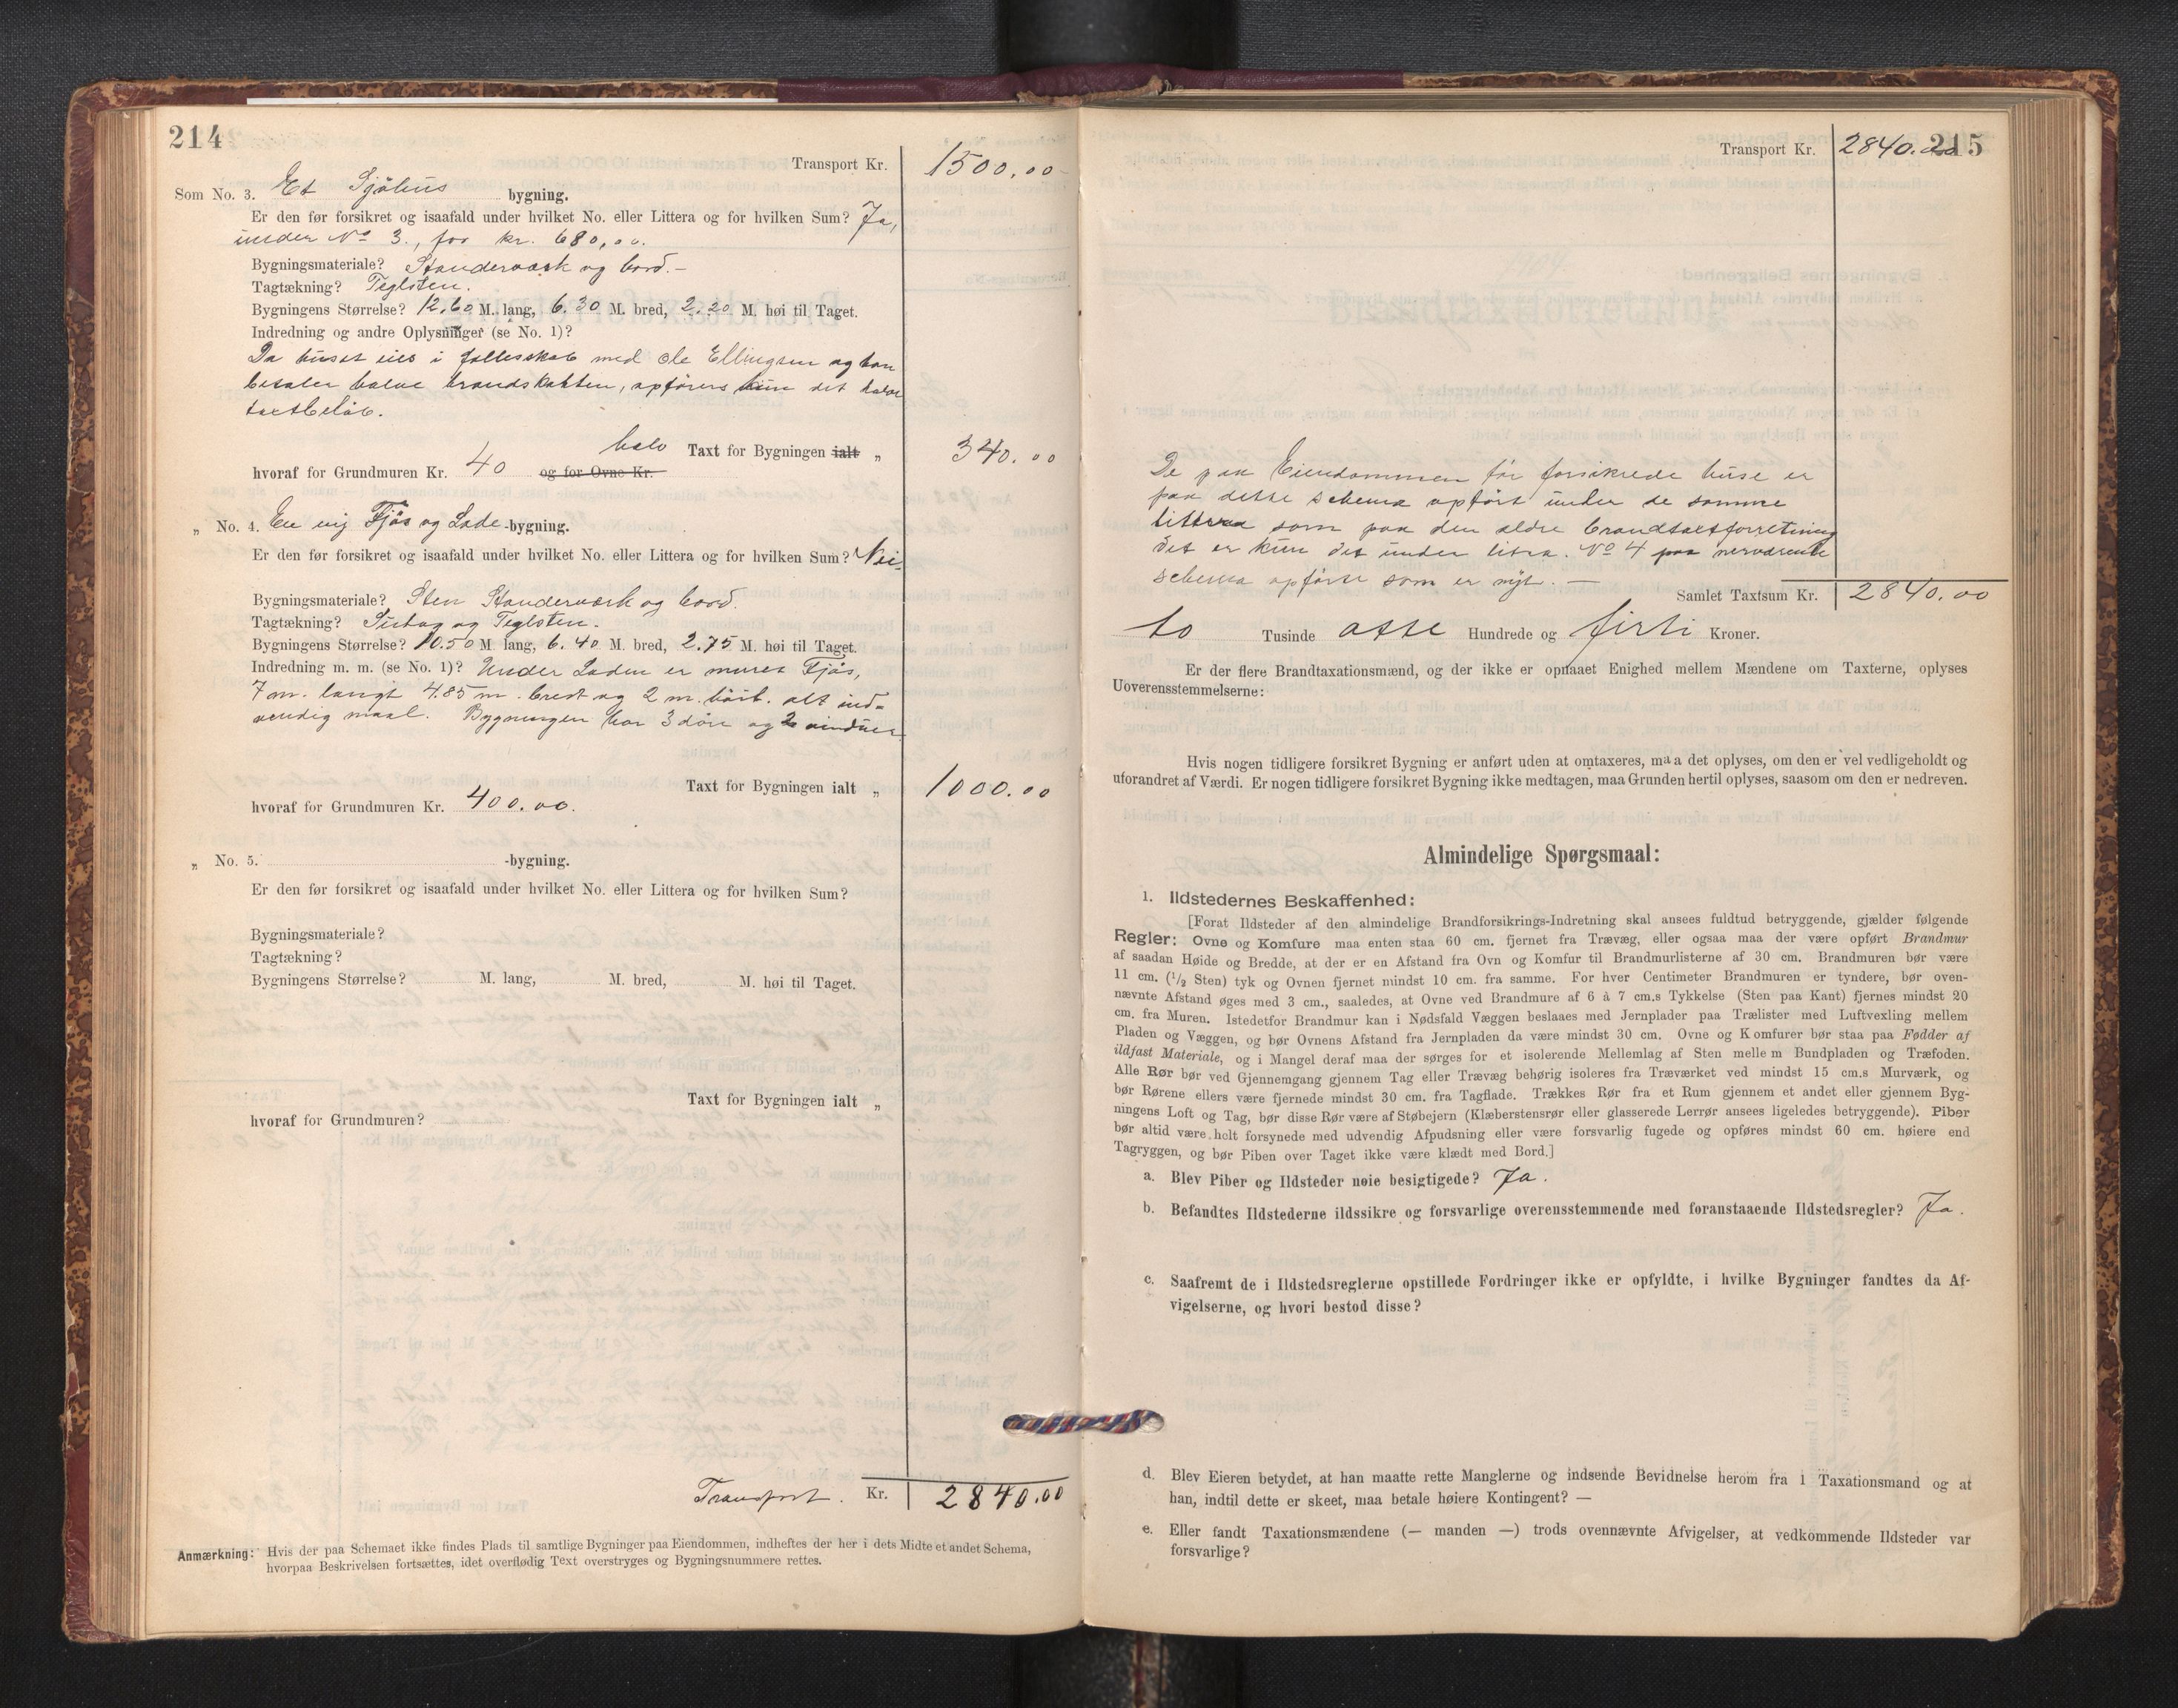 214
Transport Kr. 1500,00
Som No. 3. Et Sjöhus bygning.
Er den før forsikret og isaafald under hvilket No. eller Littera og for hvilken Sum? Ja,
under No 3., for kr. 680,00.
Bygningsmateriale? Standerværk og bord. –
Tagtækning? Teglsten.
Bygningens Størrelse? 12,60 M. lang, 6.30 M. bred, 2.20 M. høi til Taget.
Indredning og andre Oplysninger (se No. 1)?
Da huset eies i fællesskab med Ole Ellingsen og han
betaler halve brandskatten, opföres kun det halve
taxtbelöb.
halv Taxt for Bygningen ialt „ 340.00
hvoraf for Grundmuren Kr. 40 og for Ovne Kr.
„ No. 4. En ny Fjös og Lade-bygning.
Er den før forsikret og isaafald under hvilket No. eller Littera og for hvilken Sum? Nei.
Bygningsmateriale? Sten Standerværk og bord.
Tagtækning? og Teglsten.
Bygningens Størrelse? 10.50 M. lang, 6.40 M. bred, 2.75 M. høi til Taget.
Indredning m. m. (se No. 1)? Under Laden er muret Fjös,
7 m. langt 4.85 m. bredt og 2 m. höit. alt ind-
vendig maal. Bygningen har 3 döre og 2 vinduer
Taxt for Bygningen ialt „ 1000.00
hvoraf for Grundmuren Kr. 400.00.
„ No. 5. -bygning.
Er den før forsikret og isaafald under hvilket No. eller Littera og for hvilken Sum?
Bygningsmateriale?
Tagtækning?
Bygningens Størrelse? M. lang, M. bred, M. høi til Taget.
Taxt for Bygningen ialt „
hvoraf for Grundmuren?
Transport. Kr. 2840.00
Anmærkning: Hvis der paa Schemaet ikke findes Plads til samtlige Bygninger paa Eiendommen, indheftes der her i dets Midte et andet Schema,
hvorpaa Beskrivelsen fortsættes, idet overflødig Text overstryges og Bygningsnummere rettes.
215
Transport Kr. 2840.00
De paa Eiendommen för forsikrede huse er
paa dette schema opfört under de samme
littera som paa den ældre brandtaxtforretning
det er kun det under litra. No 4 paa nerværende
schema opförte som er nyt. —
Samlet Taxtsum Kr. 2840.00
to Tusinde otte Hundrede og firti Kroner.
Er der flere Brandtaxationsmænd, og der ikke er opnaaet Enighed mellem Mændene om Taxterne, oplyses
Uoverensstemmelserne:
Hvis nogen tidligere forsikret Bygning er anført uden at omtaxeres, maa det oplyses, om den er vel vedligeholdt og
uforandret af Værdi. Er nogen tidligere forsikret Bygning ikke medtagen, maa Grunden hertil oplyses, saasom om den er nedreven.
Almindelige Spørgsmaal:
1. Ildstedernes Beskaffenhed:
[Forat Ildsteder af den almindelige Brandforsikrings-Indretning skal ansees fuldtud betryggende, gjælder følgende
Regler: Ovne og Komfure maa enten staa 60 cm. fjernet fra Trævæg, eller ogsaa maa der være opført Brandmur
af saadan Høide og Bredde, at der er en Afstand fra Ovn og Komfur til Brandmurlisterne af 30 cm. Brandmuren bør være
11 cm. (1/2 Sten) tyk og Ovnen fjernet mindst 10 cm. fra samme. For hver Centimeter Brandmuren er tyndere, bør oven-
nævnte Afstand øges med 3 cm., saaledes, at Ovne ved Brandmure af 6 à 7 cm.s Tykkelse (Sten paa Kant) fjernes mindst 20
cm. fra Muren. Istedetfor Brandmur kan i Nødsfald Væggen beslaaes med Jernplader paa Trælister med Luftvexling mellem
Pladen og Væggen, og bør Ovnens Afstand fra Jernpladen da være mindst 30 cm. Ovne og Komfurer bør staa paa Fødder af
ildfast Materiale, og i Mangel deraf maa der sørges for et isolerende Mellemlag af Sten mellem Bundpladen og Træfoden.
Alle Rør bør ved Gjennemgang gjennem Tag eller Trævæg behørig isoleres fra Træværket ved mindst 15 cm.s Murværk, og
bør Rørene ellers være fjernede mindst 30 cm. fra Tagflade. Trækkes Rør fra et Rum gjennem et andet eller gjennem Byg-
ningens Loft og Tag, bør disse Rør være af Støbejern (Klæberstensrør eller glasserede Lerrør ansees ligeledes betryggende). Piber
bør altid være helt forsynede med udvendig Afpudsning eller være forsvarlig fugede og opføres mindst 60 cm. høiere end
Tagryggen, og bør Piben over Taget ikke være klædt med Bord.]
a. Blev Piber og Ildsteder nøie besigtigede? Ja.
b. Befandtes Ildstederne ildssikre og forsvarlige overensstemmende med foranstaaende Ildstedsregler? Ja.
c. Saafremt de i Ildstedsreglerne opstillede Fordringer ikke er opfyldte, i hvilke Bygninger fandtes da Af-
vigelserne, og hvori bestod disse?
d. Blev Eieren betydet, at han maatte rette Manglerne og indsende Bevidnelse herom fra 1 Taxationsmand og at
han, indtil dette er skeet, maa betale høiere Kontingent? —
e. Eller fandt Taxationsmændene (— manden —) trods ovennævnte Afvigelser, at vedkommende Ildsteder var
forsvarlige?